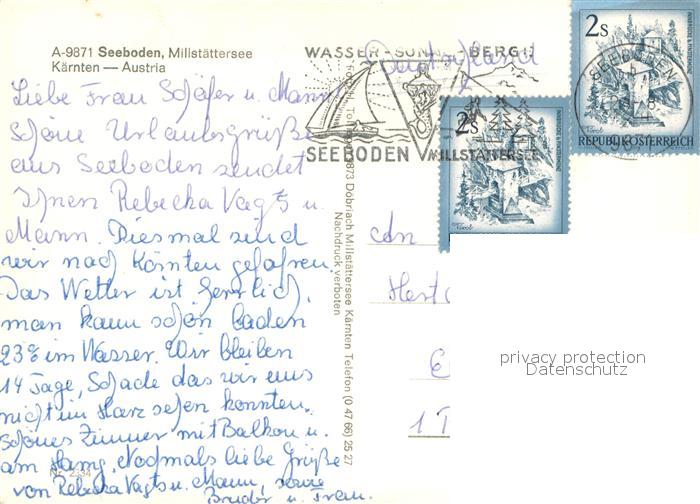 A-9871 Seeboden, Millstättersee
Kärnten — Austria
WASSER-SONNE-BERGE
SEEBODEN MILLSTÄTTERSEE
Deutschland
2s
2s
SEEBODEN
REPUBLIK ÖSTERREICH
Liebe Frau Schäfer u. Mann
Schöne Urlaubsgrüße
aus Seeboden sendet
Ihnen Rebecka Vagts u.
Mann. Diesmal send
wir nach Kärnten gefahren.
Das Wetter ist herrlich,
man kann schon baden
23° im Wasser. Wir bleiben
14 Tage, Schade das wir uns
nicht im Harz sehen konnten.
Schönes Zimmer mit Balkon u.
am Hang. Nochmals liebe Grüße
von Rebecka Vagts u. Mann, sowie
Bruder u. Frau.
Nr. 2334
9873 Döbriach Millstättersee Kärnten Telefon (0 47 66) 25 27
Nachdruck verboten
An
1 
privacy protection
Datenschutz